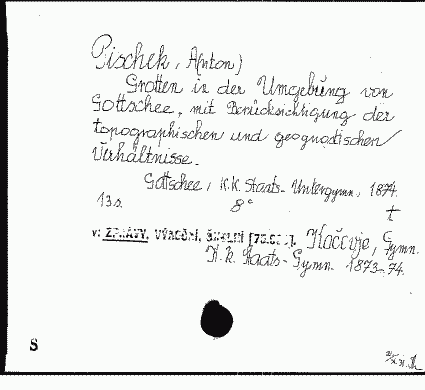 Pischek, A(nton)
Grotten in der Umgebung von
Gottschee, mit Berücksichtigung der
topographischen und geognostischen
Verhältnisse.
Gottschee, K.K. Staats-Untergymn., 1874.
13 s. 8° t
v: ZPRÁVY, VÝROČNÍ, ŠKOLNÍ Kočevje, Gymn.
K.k. Staats-Gymn. 1873-74.
S